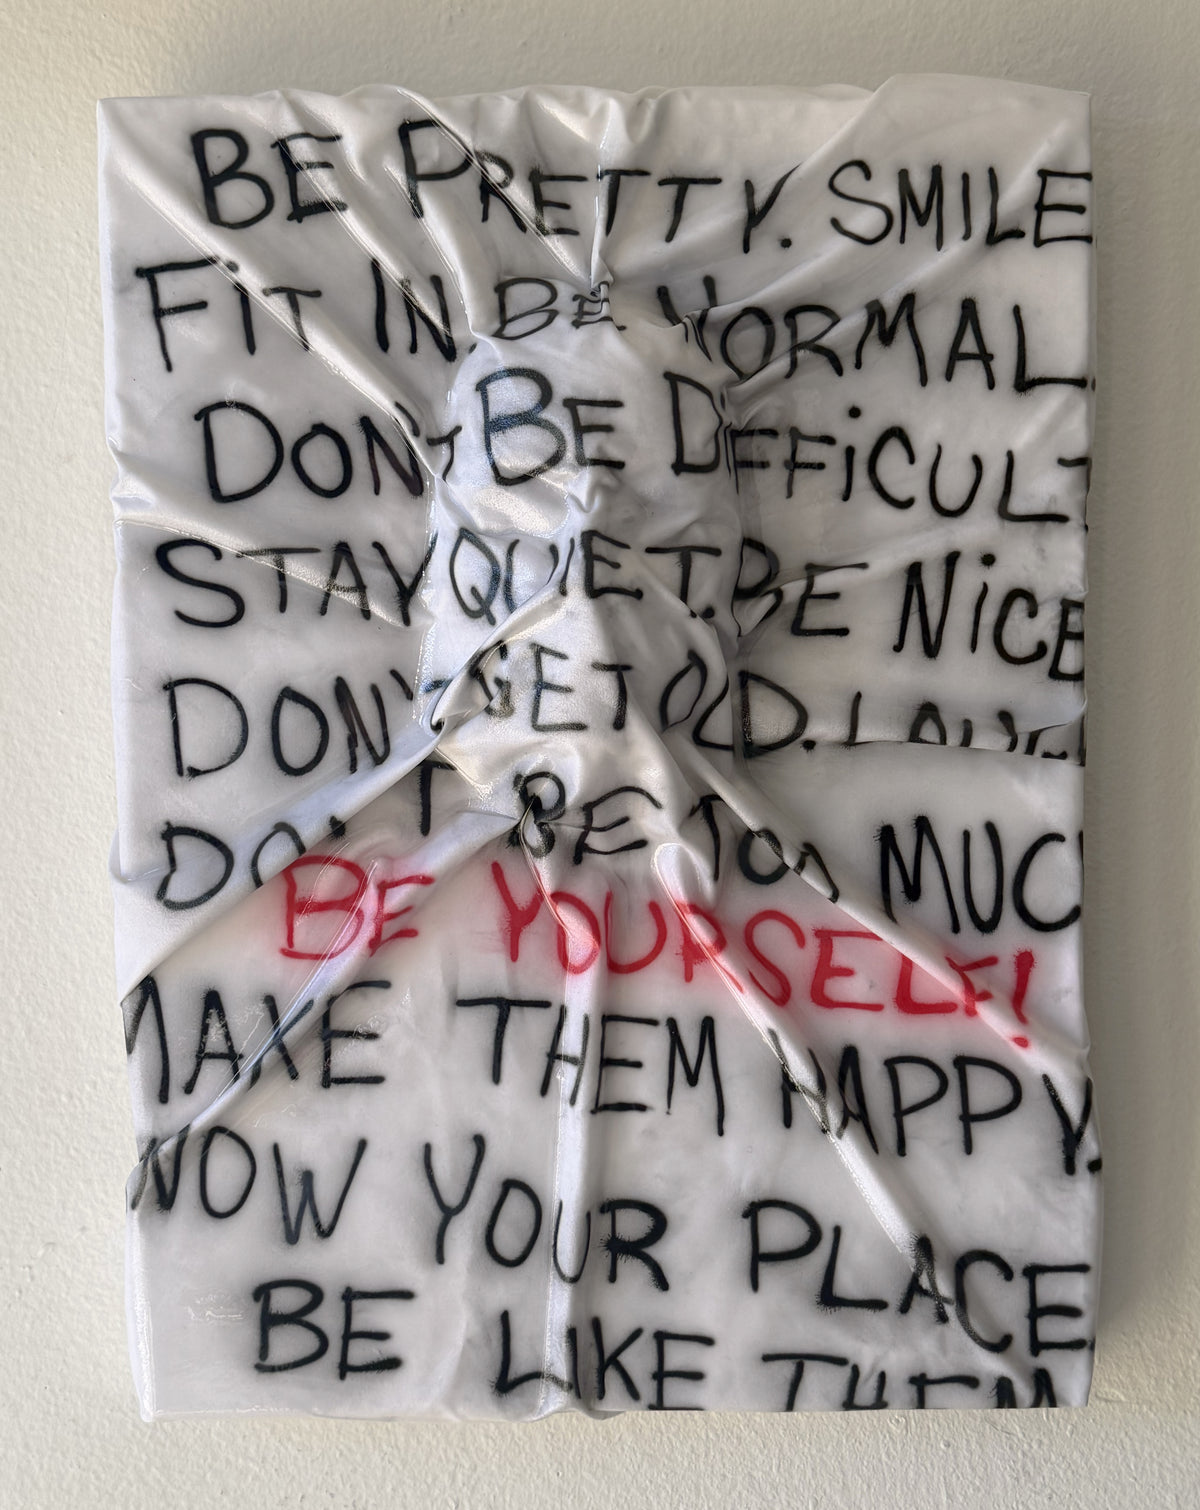 BE PRETTY. SMILE
FiT IN. BE NORMAL.
DON'T BE DiFFiCULT
STAY QUIET. BE NiCE
DON'T GET OLD. LAUG
DON'T BE TOO MUC
BE YOURSELF!
MAKE THEM HAPPY.
NOW YOUR PLACE
BE LIKE THEM